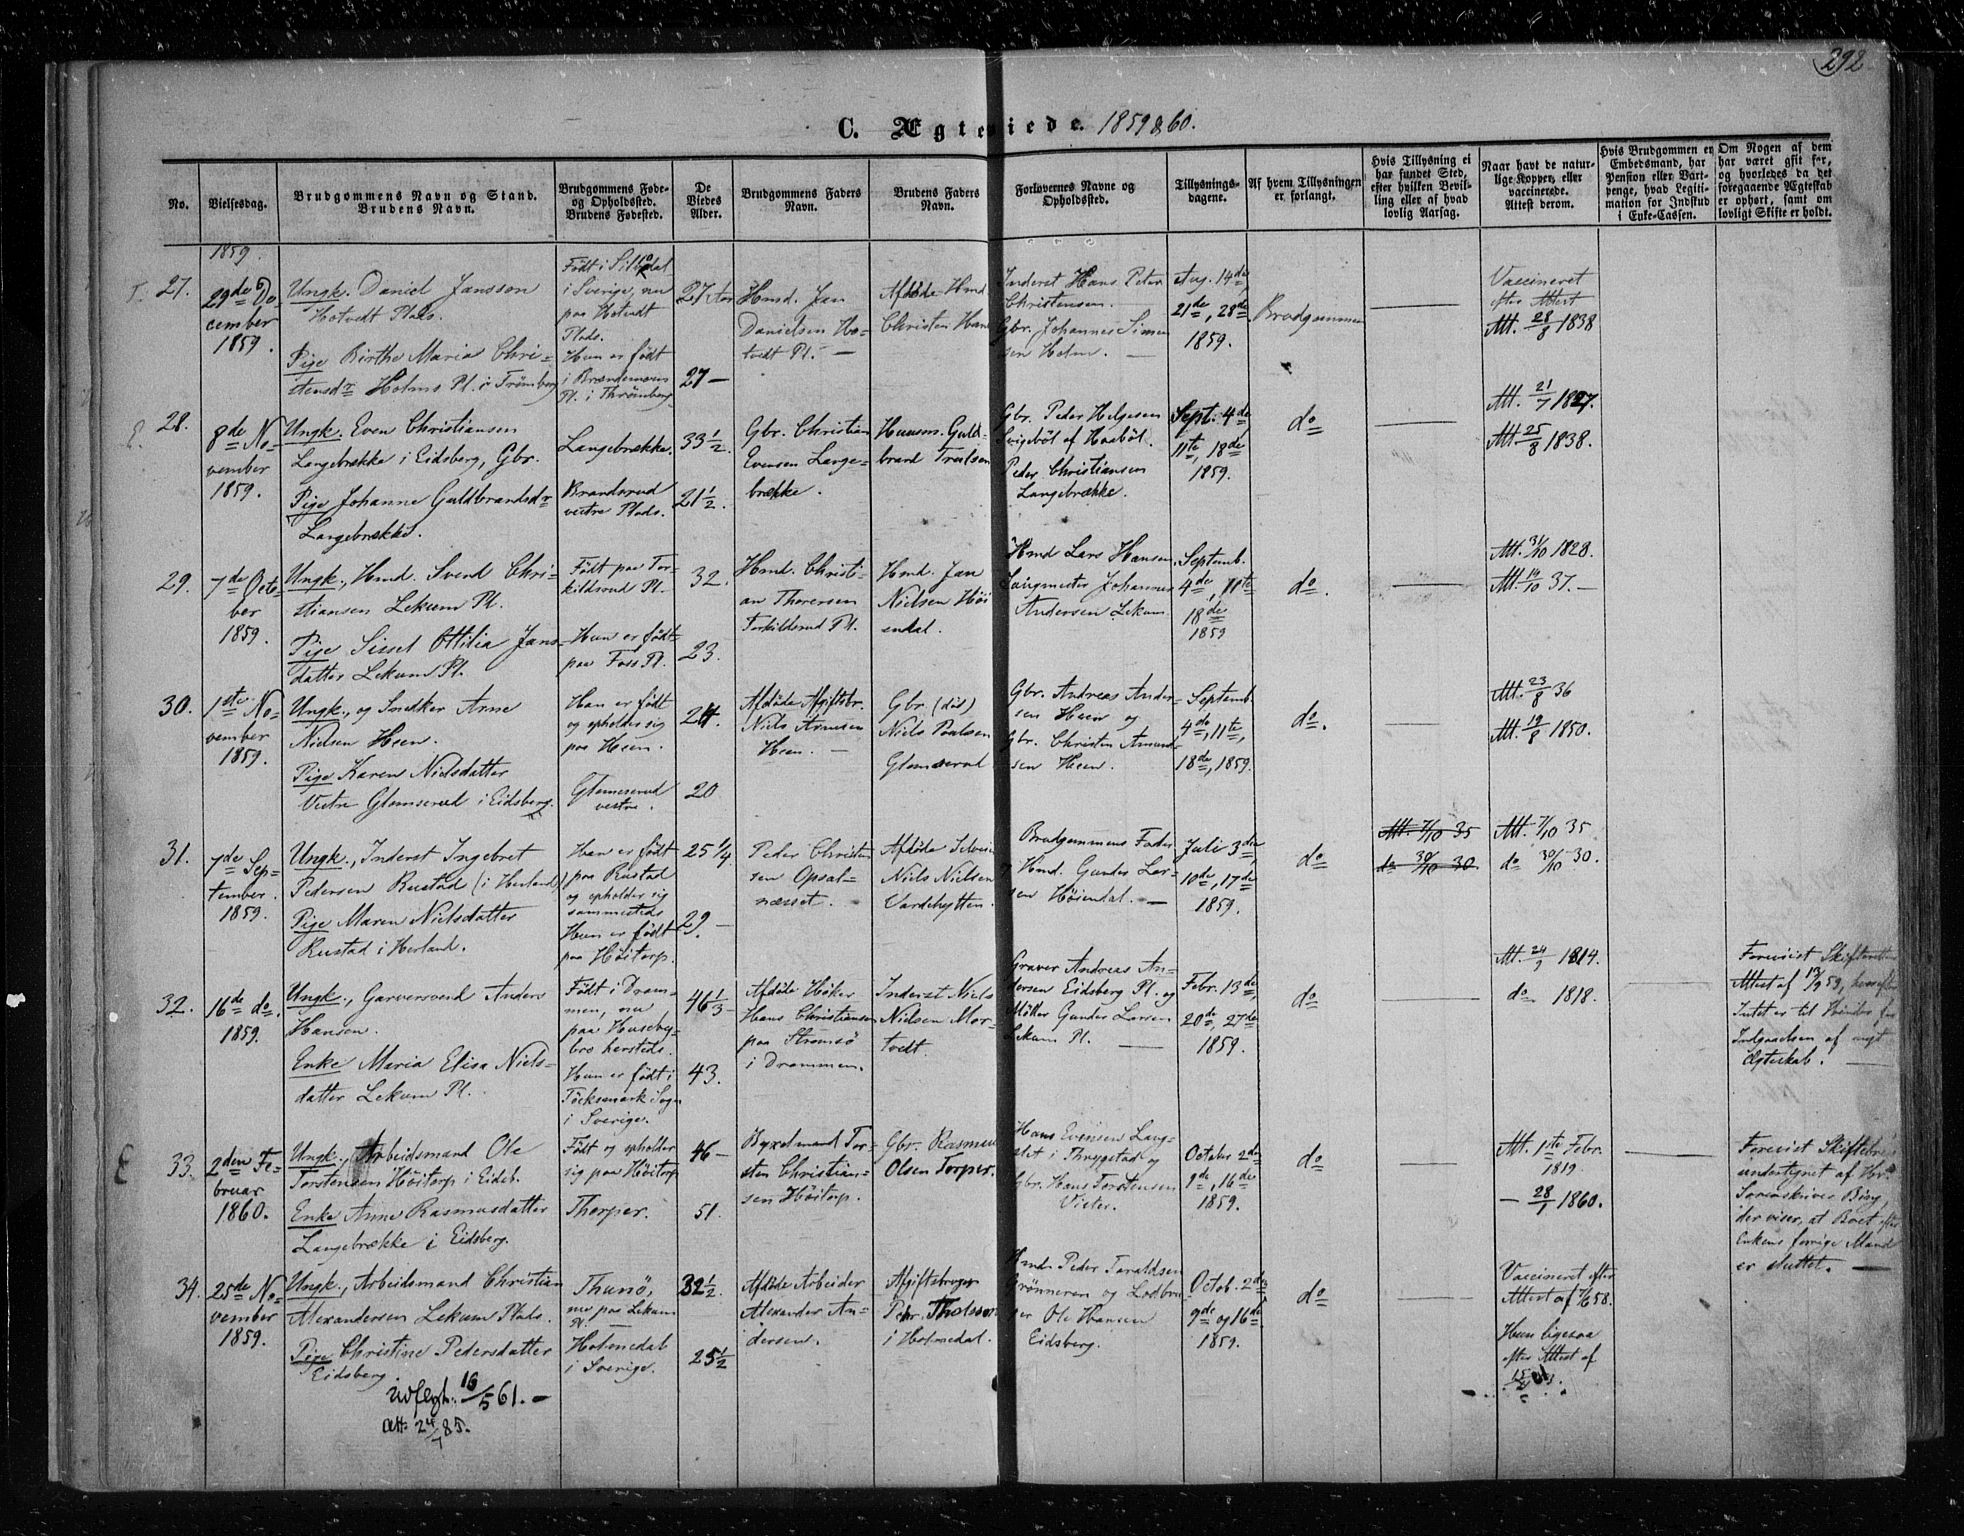 292
C. Ægteviede. 1859 & 60.
No.
Vielsesdag.
Brudgommens Navn og Stand.
Brudens Navn.
Brudgommens Føde-
og Opholdssted.
Brudens Fødested.
De
Viedes
Alder.
Brudgommens Faders
Navn.
Brudens Faders
Navn.
Forlovernes Navne og
Opholdssted.
Tillysnings-
dagene.
Af hvem Tillysningen
er forlangt.
Hvis Tillysning ei
har fundet Sted,
efter hvilken Bevil-
ling eller af hvad
lovlig Aarsag.
Naar havt de natur-
lige Kopper, eller
vaccinerede.
Attest derom.
Hvis Brudgommen er
Embedsmand, har
Pension eller Vart-
penge, hvad Legiti-
mation for Indskud
i Enke-Cassen.
Om Nogen af dem
har været gift før,
og hvorledes da det
foregaaende Ægteskab
er ophørt, samt om
lovligt Skifte er holdt.
1859.
27.
29de De-
cember
1859.
Ungk. Daniel Jansson
Hotvedt Plads.
Pige Birthe Maria Chri-
stensdr Holms Pl. i Trömborg
Født i Sillbodal
i Sverige, nu
paa Hotvedt
Plads.
Hun er født
i Brændemoen
Pl. i Thrömborg
27 Aar
27 —
Hmd. Jan
Danielsen Ho-
tvedt Pl. —
Afdøde Hmd
Christen Hans
Inderst Hans Peter
Christensen.
Gbr. Johannes Simen-
sen Holm. —
Aug. 14de
21de, 28de
1859.
Brudgommen
Vaccineret
efter Attest
Att. 28/8 1838
Att. 21/7 1827.
28.
8de No-
vember
1859.
Ungk. Even Christiansen
Langebrække i Eidsberg, Gbr.
Pige Johanne Guldbrandsdr
Langebrække.
Langebrække.
Brandsrud
vestre Plads.
33 1/2
21 1/2.
Gbr. Christian
Evensen Lange-
brække.
Huusm. Guld-
brand Truelsen
Gbr. Peder Helgesen
Svigebøl af Haabøl.
Peder Christiansen
Langebrække.
Sept. 4de
11te, 18de
1859.
do
Att. 25/8 1838.
29.
7de Octo-
ber
1859.
Ungk., Hmd. Svend Chri-
stiansen Lekum Pl.
Pige Sissel Ottilia Jans-
datter Lekum Pl.
Født paa Tor-
kildsrud Pl.
Hun er født
paa Foss Pl.
32.
23.
Hmd. Christi-
an Thoresen
Torkildsrud Pl.
Hmd. Jan
Nielsen Høi-
endal.
Hmd Lars Hansen
Saugmester Johannes
Andersen Lekum
Septemb.
4de, 11te
18de
1859
do.
Att. 31/10 1828.
Att. 14/10 37. —
30.
1ste No-
vember
1859.
Ungk., og Snedker Arne
Nielsen Heen.
Pige Karen Nielsdatter
Vestre Glamserud i Eidsberg.
Han er født
og opholder sig
paa Heen.
Glamserud
vestre.
24.
20
Afdøde Afgiftsbr.
Niels Arnesen
Heen. —
Gbr. (død)
Niels Poulsen
Glamserud
Gbr. Andreas Ander-
sen Heen og
Gbr. Christen Amund-
sen Heen.
Septemb.
4de, 11te,
18de, 1859.
do.
Att. 23/8 36
Att. 19/8 1850.
31.
7de Sep-
tember
1859.
Ungk., Inderst Ingebret
Pedersen Rustad (i Herland)
Pige Maren Nielsdatter
Rustad i Herland.
Han er født
paa Rustad
og opholder sig
sammesteds
Hun er født
paa Høitorp.
25 1/4
29. —
Peder Christen-
sen Opsal-
næsset.
Afdøde
Niels Nielsen
Vardehytten.
Brudgommens Fader
og Hmd. Gunder Lar-
sen Høiendal. —
Juli 3die,
10de, 17de
1859.
do
Att. 7/10 35
do 30/10 30
Att. 7/10 35
do 30/10 30.
32.
16de do.
1859.
Ungk., Garversvend Anders
Hansen.
Enke Maria Elisa Niels-
datter Lekum Pl.
Født i Dram-
men, nu
paa Huseby-
bro hersteds.
Hun er født i
Töcksmark Sogn
i Sverige.
46 1/3 —
43.
Afdøde Høker
Hans Christiansen
paa Strømsø
i Drammen.
Inderst Niels
Nielsen Mor-
tvedt.
Graver Andreas An-
dersen Eidsberg Pl. og
Møller Gunder Larsen
Lekum Pl. —
Febr. 13de,
20de, 27de
1859.
do
Att. 24/9 1814.
do 1818.
Foreviist Skifterettens
Attest af 13/9 59, hvorefter
Intet er til Hinder for
Indgaaelsen af nyt
Ægteskab. —
33.
2den Fe-
bruar
1860.
Ungk., Arbeidsmand Ole
Torstensen Høitorp i Eidsb.
Enke Anne Rasmusdatter
Langebrække i Eidsberg.
Født og opholder
sig paa Høitorp
Thorper.
46 —
51.
Byxelmand Tor-
sten Christian-
sen Høitorp.
Gbr. Rasmus
Olsen Torper.
Hans Evensen Lang-
slet i Thrygstad og
Gbr. Hans Torstensen
October 2de
9de, 16de
1859.
do
Att. 1ste Febr.
1819.
— 28/1 1860.
Foreviist Skiftebrev
undertegnet af Hr.
Sorenskriver Bing
der viser, at Boet efter
Enkens forrige Mand
er sluttet. —
34.
25de No-
vember
1859.
Ungk., Arbeidsmand Christian
Alexandersen Lekum Plads.
Pige Christine Pedersdatter
Eidsberg.
Udflyt. 16/5 61. —
Att. 24/1 85.
Thunö,
nu paa Lekum
Pl. —
Holmedal
i Sverige.
32 1/2.
25 1/2
Afdøde Arbeider
Alexander An-
dersen.
Afgiftsbruger
Petr. Tholsson
i Holmedal.
Hmd. Peder Taraldsen
Grönneren og Lodbru-
ger Ole Hansen
Eidsberg.
Octob. 2de
9de og 16de
1859.
do
Vaccineret efter
Attest af 58.
Hun ligesaa
efter Attest af